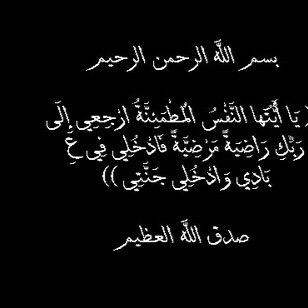 بسم الله الرحمن الرحيم
يَا أَيَّتُهَا النَّفْسُ الْمُطْمَئِنَّةُ ارْجِعِي إِلَى
رَبِّكِ رَاضِيَةً مَرْضِيَّةً فَادْخُلِي فِي عِ
بَادِي وَادْخُلِي جَنَّتِي ))
صدق الله العظيم